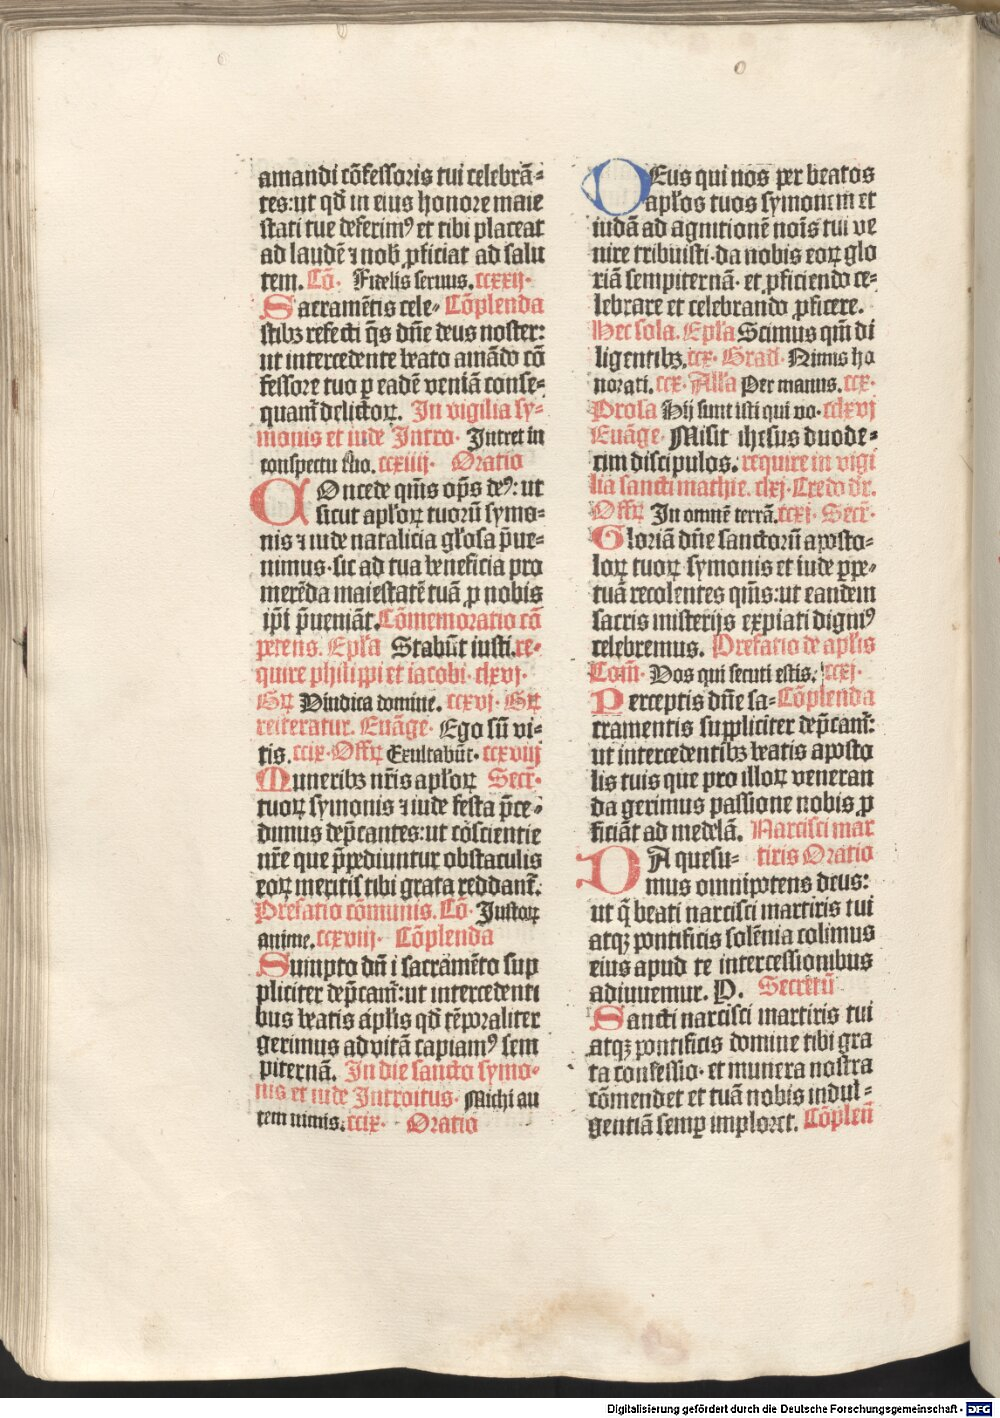 amandi cōfessoris tui celebrā-
tes: ut qd̄ in eius honore maie
stati tue deferimꝰ et tibi placeat
ad laudē ⁊ nob̄ ꝓficiat ad salu
tem. Cō. Fidelis seruus. ccxxij.
Sacramētis cele- Cōplenda
stibꝫ refecti q̄s dn̄e deus noster:
ut intercedente beato amādo cō
fessore tuo ꝑ eadē veniā conse-
quam̄ delictoꝝ. In vigilia sy-
monis et iude Intro. Intret in
conspectu tuo. ccxiiij. Oratio
COncede qm̄s op̄s deꝰ: ut
sicut apl'oꝝ tuorū symo-
nis ⁊ iude natalicia gl'osa p̄ue-
nimus. sic ad tua beneficia pro
merēda maiestatē tuā ꝓ nobis
ip̄i p̄ueniāt. Cōmemoratio cō
petens. Epl'a Stabūt iusti. re-
quire philippi et iacobi. clxvj.
Gꝝ Vindica domine. ccxvj. Gꝝ
reiteratur. Euāge. Ego sū vi-
tis. ccix. Offꝝ Exultabūt. ccxviij
Muneribꝫ nr̄is apl'oꝝ Secr̄.
tuoꝝ symonis ⁊ iude festa p̄ce-
dimus dep̄cantes: ut cōscientie
nr̄e que p̄pediuntur obstaculis
eoꝝ meritis tibi grata reddant̄.
Prefatio cōmunis. Cō. Iustoꝝ
anime. ccxviij. Cōplenda
Sumpto dn̄i sacramēto sup
pliciter dep̄cam̄: ut intercedenti
bus beatis apl'is qd̄ tēporaliter
gerimus ad vitā capiamꝰ sem
piternā. In die sancto symo-
nis et iude Introitus. Michi au
tem nimis. ccix. Oratio
DEus qui nos per beatos
apl'os tuos symonem et
iudā ad agnitionē nōis tui ve
nire tribuisti. da nobis eoꝝ glo
riā sempiternā. et ꝓficiendo ce-
lebrare et celebrando ꝓficere.
Hec sola. Epl'a Scimus qm̄ di
ligentibꝫ. ccx. Grad. Nimis ho
norati. ccx. All'a Per manus. ccx.
Prosa Hij sunt isti qui vo. cclxvj
Euāge. Misit ihesus duode-
cim discipulos. require in vigi
lia sancti mathie. clxj. Credo dr̄.
Offꝝ In omnē terrā. ccxj. Secr̄.
Gloriā dn̄e sanctorū aposto-
loꝝ tuoꝝ symonis et iude ꝑpe-
tuā recolentes qm̄s: ut eandem
sacris misterijs expiati dignꝰ
celebremus. Prefatio de apl'is
Com̄. Vos qui secuti estis. ccxj.
Perceptis dn̄e sa- Cōplenda
cramentis suppliciter dep̄cam̄:
ut intercedentibꝫ beatis aposto
lis tuis que pro illoꝝ veneran
da gerimus passione nobis ꝓ
ficiāt ad medelā. Narcisci mar
DA quesu- tiris Oratio
mus omnipotens deus:
ut q̄ beati narcisci martiris tui
atqꝫ pontificis solēnia colimus
eius apud te intercessionibus
adiuuemur. P. Secretū
Sancti narcisci martiris tui
atqꝫ pontificis domine tibi gra
ta confessio. et munera nostra
cōmendet et tuā nobis indul-
gentiā semꝑ imploret. Cōplen̄
Digitalisierung gefördert durch die Deutsche Forschungsgemeinschaft - DFG